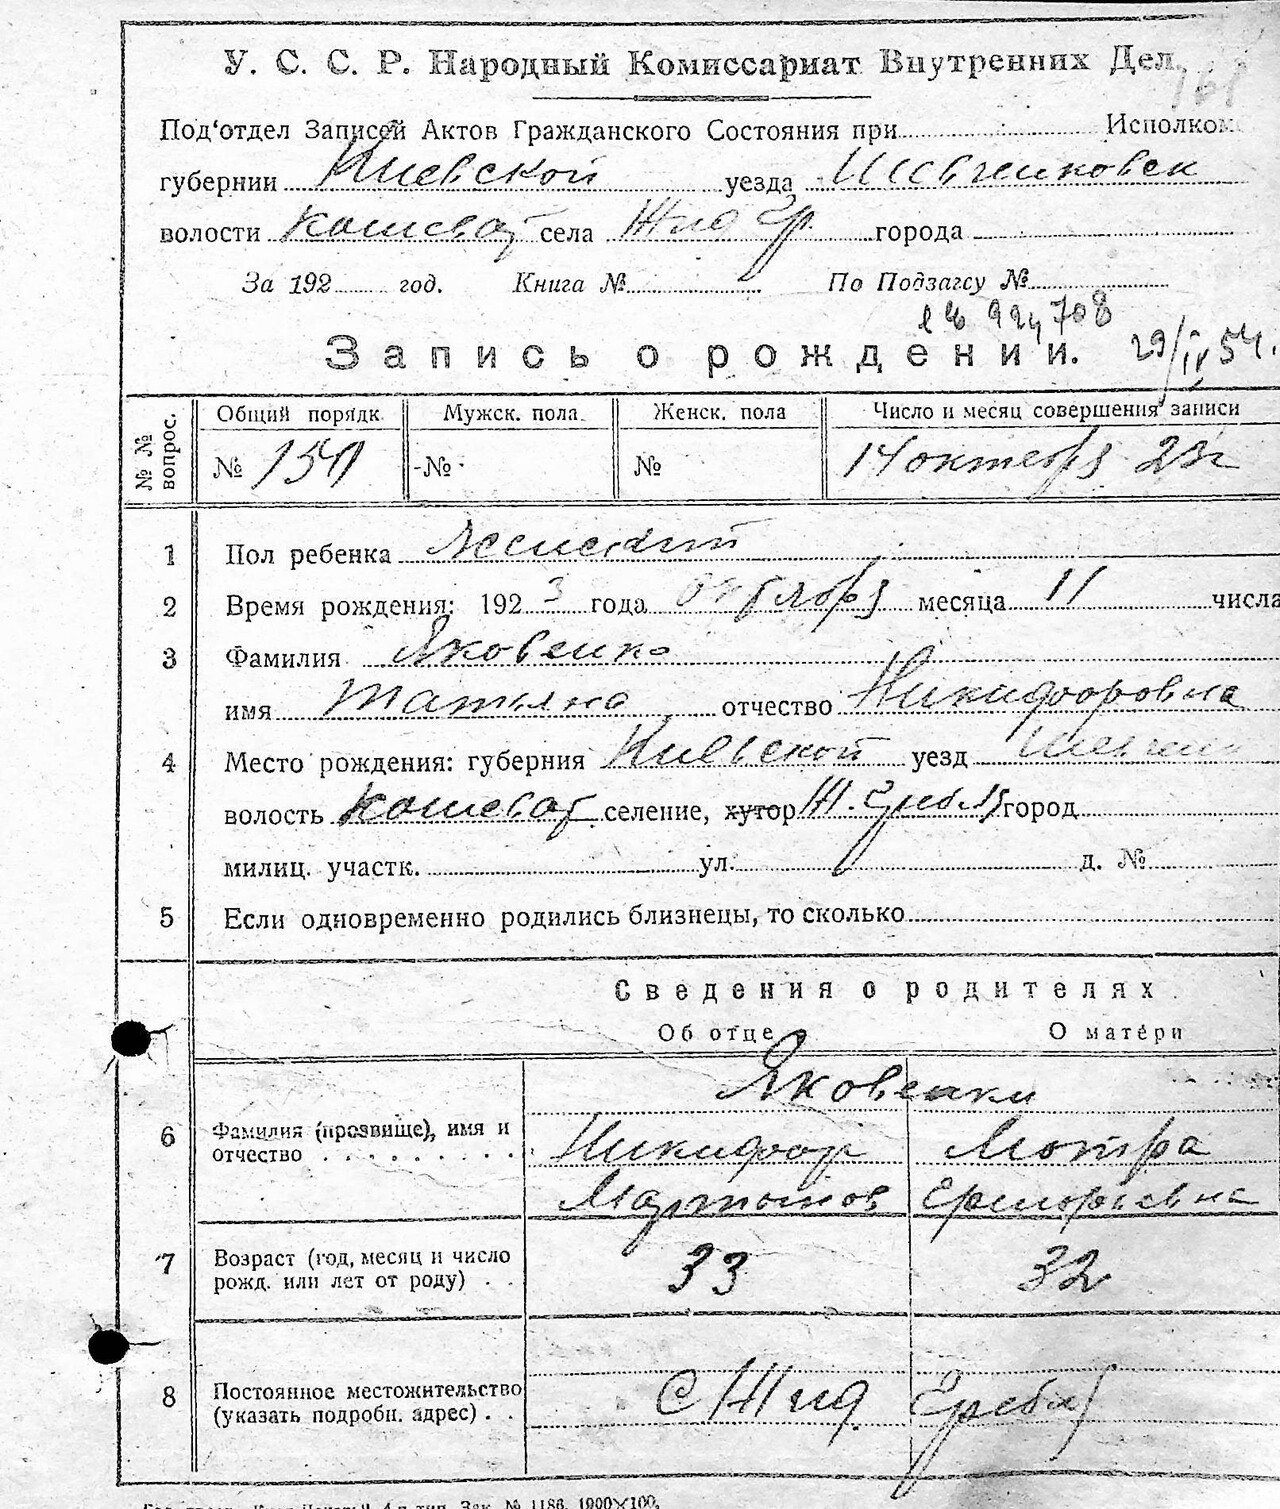 У. С. С. Р. Народный Комиссариат Внутренних Дел.
161
Под'отдел Записей Актов Гражданского Состояния при Исполком
губернии Киевской уезда Шевченковск
волости Кошеват села Жид Гр. города
За 192 год. Книга № По Подзагсу №
708
Запись о рождении. 29/IV 54.
№ № вопрос.
Общий порядк. Мужск. пола Женск. пола Число и месяц совершения записи
№ 150 № № 14 октября 23 г
1 Пол ребенка Женский
2 Время рождения: 1923 года октября месяца 11 числа
3 Фамилия Яковенко
имя Татьяна отчество Никифоровна
4 Место рождения: губерния Киевской уезд Шевченк
волость Кошеват селение, хутор Ж. Гребля город
милиц. участк. ул. д. №
5 Если одновременно родились близнецы, то сколько
Сведения о родителях
Об отце О матери
Яковенки
6 Фамилия (прозвище), имя и Никифор Мотра
отчество Мартынов
7 Возраст (год, месяц и число 33 32
рожд. или лет от роду)
8 Постоянное местожительство с Жид Гребля
(указать подробн. адрес)
4 л. тип. Зак. № 1186. 1900×100.